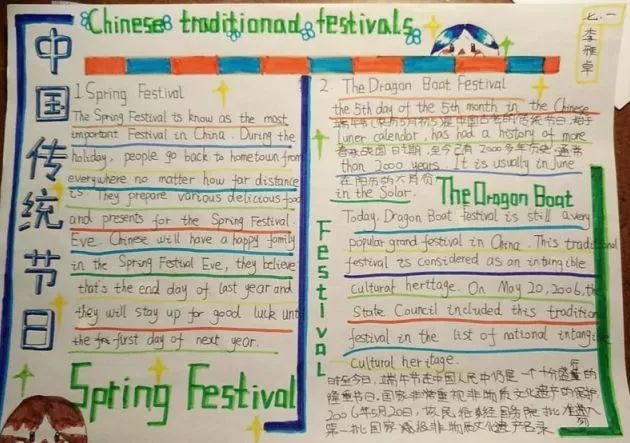 Chinese traditionad festivals
七.一
李雅卓
中国传统节日
1.Spring Festival
The Spring Festival is know as the most
important Festival in China. During the
holiday, people go back to hometown from
everywhere no matter how far distance
is. They prepare various delicious food
and presents for the Spring Festival
Eve. Chinese will have a happy family
in the Spring Festival Eve, they believe
that's the end day of last year and
they will stay up for good luck unti
the first day of next year.
Spring Festival
2. The Dragon Boat Festival
the 5th day of the 5th month in the Chinese
端午节(农历5月初5)是中国古老的传统节日,始于
luner calendar, has had a history of more
春秋战国日期,至今已有2000多年历史.通常
than 2000 years. It is usually in June
在阳历的六月份
in the Solar.
The Dragon Boat
Festival
Today, Dragon Boat festival is still a very
popular grand festival in China. This traditional
festival is considered as an intungible
cultural herttage. On May 20,2006, the
State Council included this tradition
festival in the list of national intangible
cultural heritage.
时至今日,端午节在中国人民中仍是一个十分盛重的
隆重节日.国家非常重视非物质文化遗产的保护
2006年5月20日,该民俗经国务院批准列入
第一批国家级非物质文化遗产名录